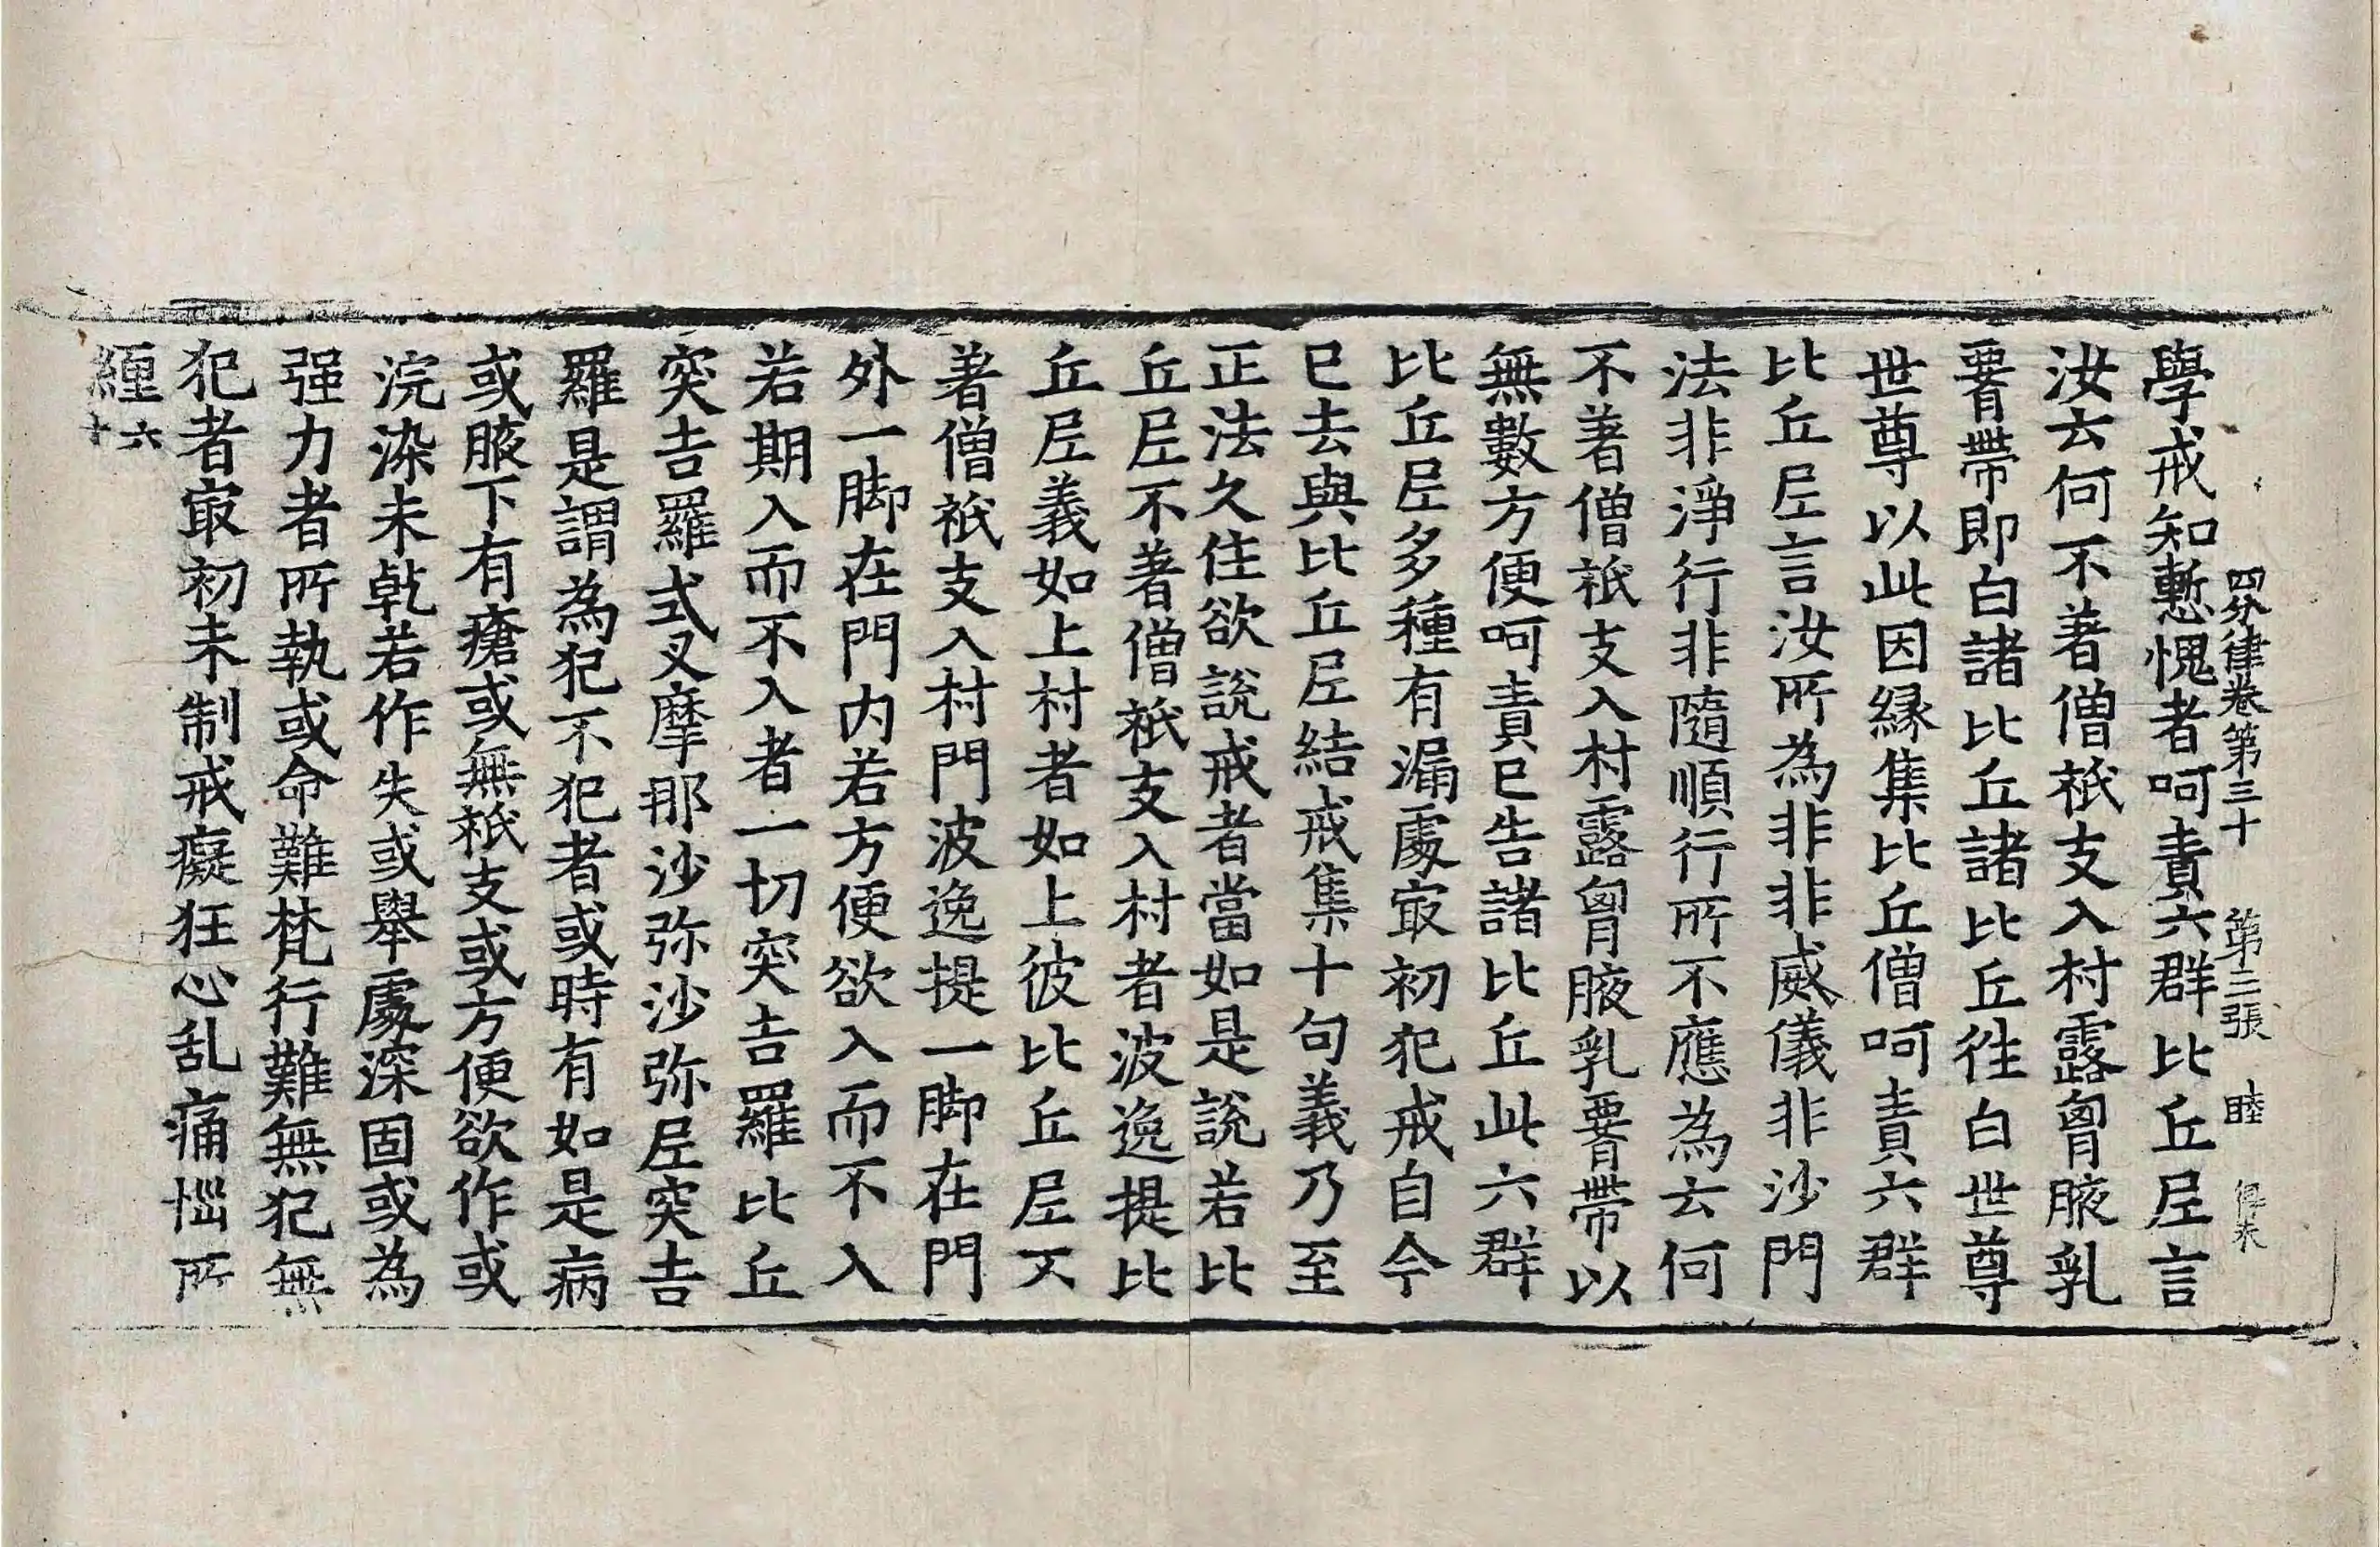 四分律卷第三十 第二張 睦
學戒知慙愧者呵責六群比丘尼言
汝云何不著僧祇支入村露胷腋乳
䙅帶即白諸比丘諸比丘徃白世尊
世尊以此因縁集比丘僧呵責六群
比丘尼言汝所為非非威儀非沙門
法非淨行非隨順行所不應為云何
不著僧祇支入村露胷腋乳䙅帶以
無數方便呵責已告諸比丘此六群
比丘尼多種有漏處㝡初犯戒自今
已去與比丘尼結戒集十句義乃至
正法久住欲說戒者當如是說若比
丘尼不著僧祇支入村者波逸提比
丘尼義如上村者如上彼比丘尼不
著僧祇支入村門波逸提一脚在門
外一脚在門内若方便欲入而不入
若期入而不入者一切突吉羅比丘
突吉羅式叉摩那沙弥沙弥尼突吉
羅是謂為犯不犯者或時有如是病
或腋下有瘡或無祇支或方便欲作或
浣染未乹若作失或舉處深固或為
强力者所執或命難梵行難無犯無
犯者㝡初未制戒癡狂心乱痛惱所
纏六十